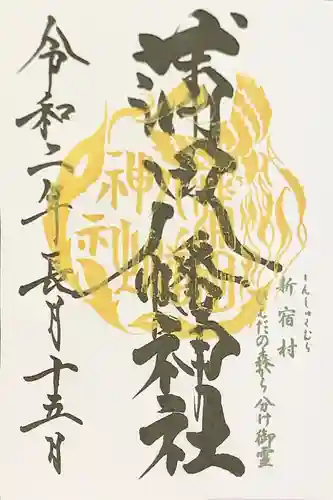 蒲田八幡神社
しんしゅくむら
新宿村
ひえだの森から分け御霊
令和二年長月十五日
神社